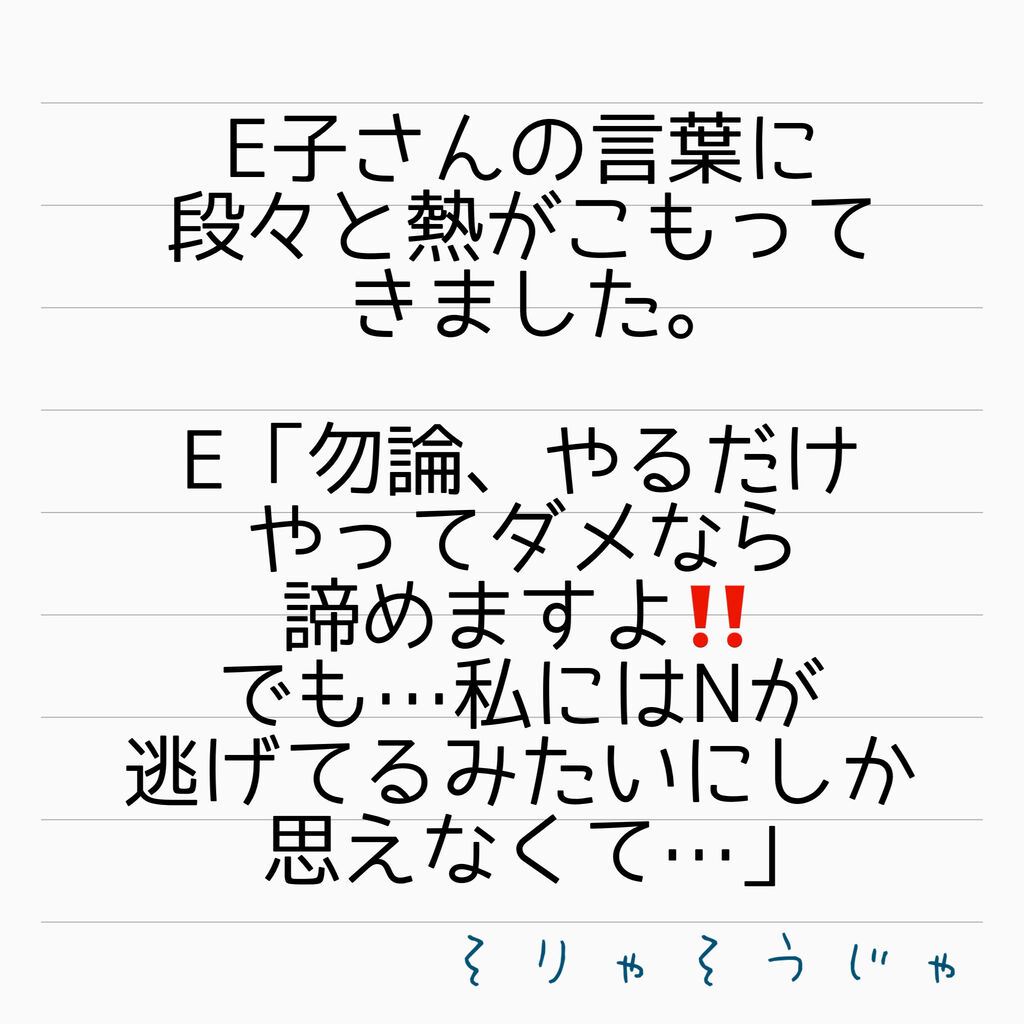 E子さんの言葉に
段々と熱がこもって
きました。
E「勿論、やるだけ
やってダメなら
諦めますよ‼️
でも…私にはNが
逃げてるみたいにしか
思えなくて…」
そりゃそうじゃ